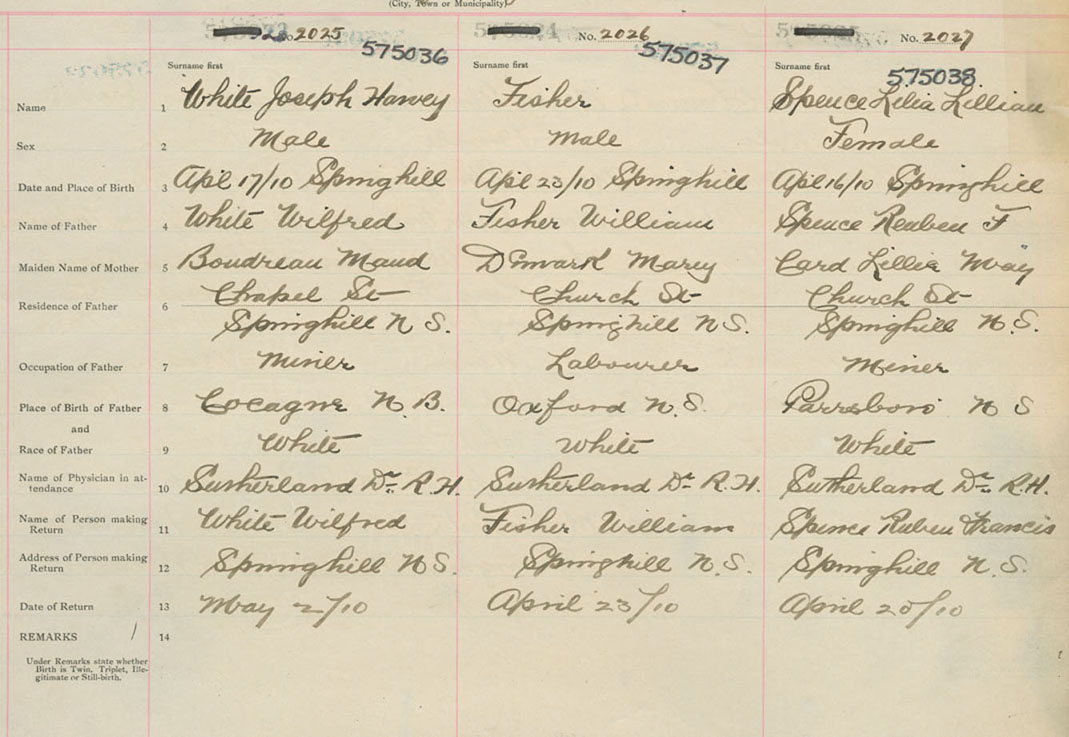 (City, Town or Municipality)
No. 2025 No. 2026 No. 2027
575036 575037 575038
Surname first Surname first Surname first
Name 1 White Joseph Harvey Fisher Spence Lelia Lillian
Sex 2 Male Male Female
Date and Place of Birth 3 Apil 17/10 Springhill Apil 23/10 Springhill Apil 16/10 Springhill
Name of Father 4 White Wilfred Fisher William Spence Reuben F
Maiden Name of Mother 5 Boudreau Maud Marey Card Lillie May
Residence of Father 6 Chapel St Church St Church St
Springhill N S. Springhill N S. Springhill N. S.
Occupation of Father 7 Miner Labourer Miner
Place of Birth of Father 8 Cocagne N. B. Oxford N. S. Parrsboro N S
and
Race of Father 9 White White White
Name of Physician in at-
tendance 10 Sutherland Dr. R. H. Sutherland Dr. R. H. Sutherland Dr. R. H.
Name of Person making
Return 11 White Wilfred Fisher William Spence Ruben Francis
Address of Person making
Return 12 Springhill N S. Springhill N. S. Springhill N. S.
Date of Return 13 May 2/10 April 23/10 April 20/10
REMARKS / 14
Under Remarks state whether
Birth is Twin, Triplet, Ille-
gitimate or Still-birth.